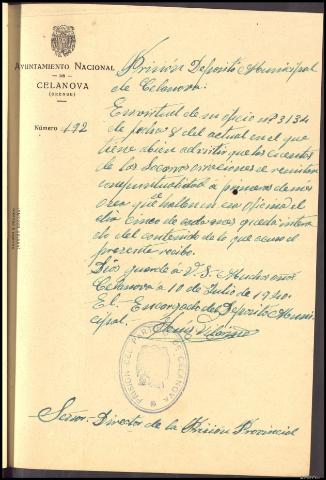 AYUNTAMIENTO NACIONAL
DE
CELANOVA
(ORENSE)
Número 192
Prisión Deposito Municipal
de Celanova:
En virtud de su oficio nº 3134
de fecha 8 del actual en el que
tiene a bien advertir que las cuentas
de los Socorros carcelarios se remitan
con puntualidad a primeros de mes
que se hallen en esa oficina el
día cinco de cada mes quedo
do del contenido de lo que acuso el
presente recibo.
Dios guarde á V.S. Muchos años
Celanova á 10 de Julio de 1940.
El Encargado del Deposito Muni-
cipal.-
PRISION DEL PARTIDO DE CELANOVA
Señor.- Director de la Prisión Provincial